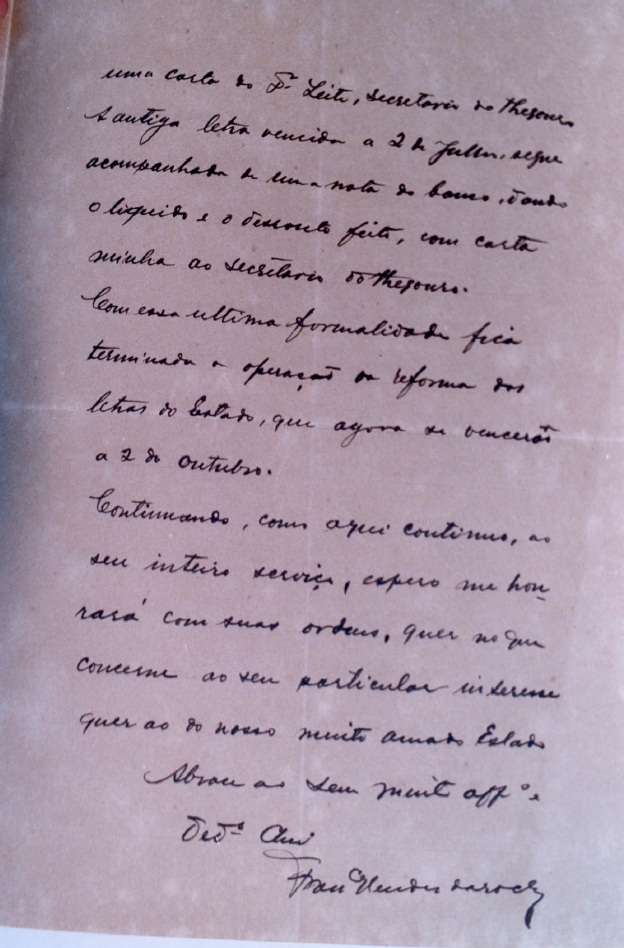 uma carta do Dr Leite, secretario do thesouro
A antiga letra vencida a 2 de Julho, segue
acompanhada de uma nota do banco, dando
o liquido e o desconto feito, com carta
minha ao secretario do thesouro.
Com essa ultima formalidade fica
terminada a operação da reforma das
letras do Estado, que agora se vencerão
a 2 de Outubro.
Continuando, como aqui continuo, ao
seu inteiro serviço, espero me hon-
rará com suas ordens, quer no que
concerne ao seu particular interesse
quer ao do nosso muito amado Estado
Abrace ao seu muito affº e
Dedº Amº
Franco Mendes da Rocha